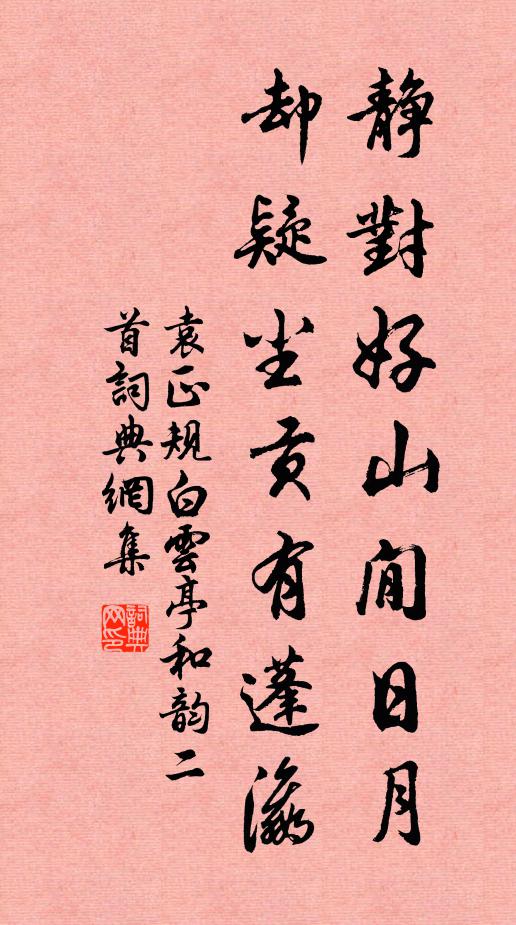 静對好山閒日月
却疑尘贡有蓬瀛
袁正規白雲亭和韵二
首詞典網集
詞典
网印